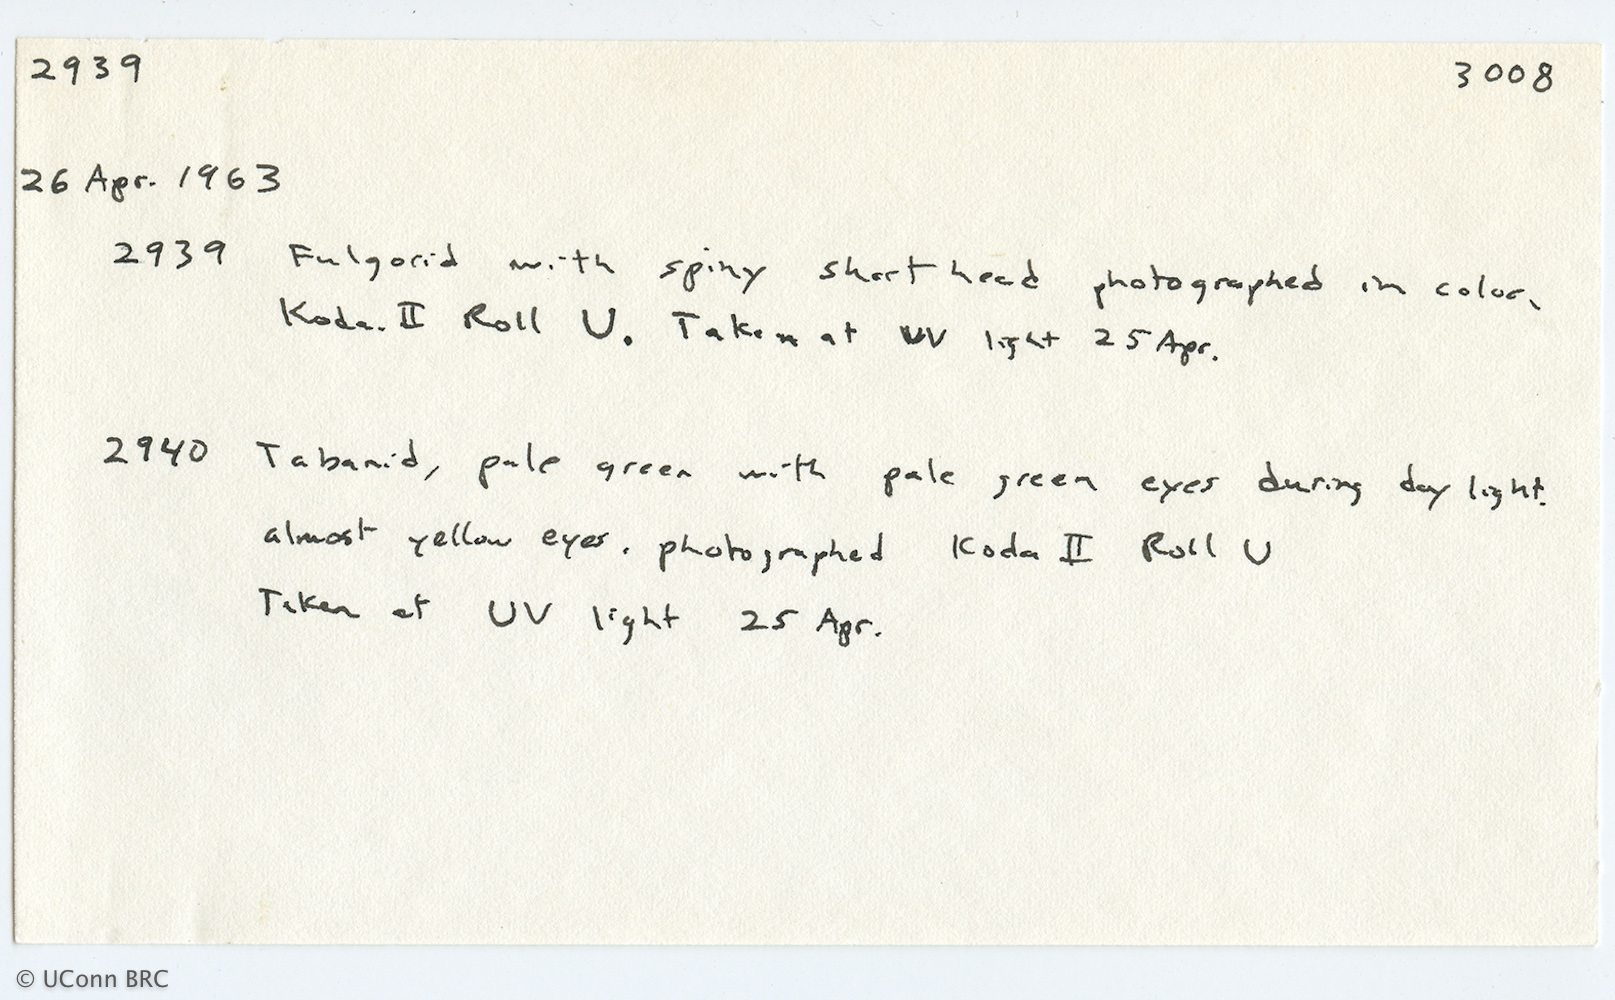 2939 3008
26 Apr. 1963
2939 Fulgorid with spiny short head photographed in color,
Koda. II Roll U. Taken at UV light 25 Apr.
2940 Tabanid, pale green with pale green eyes during day light.
almost yellow eyes. photographed Koda II Roll U
Taken at UV light 25 Apr.
© UConn BRC